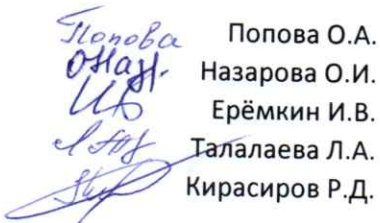 Попова Попова О.А.
Назарова О.И.
Ерёмкин И.В.
Талалаева Л.А.
Кирасиров Р.Д.